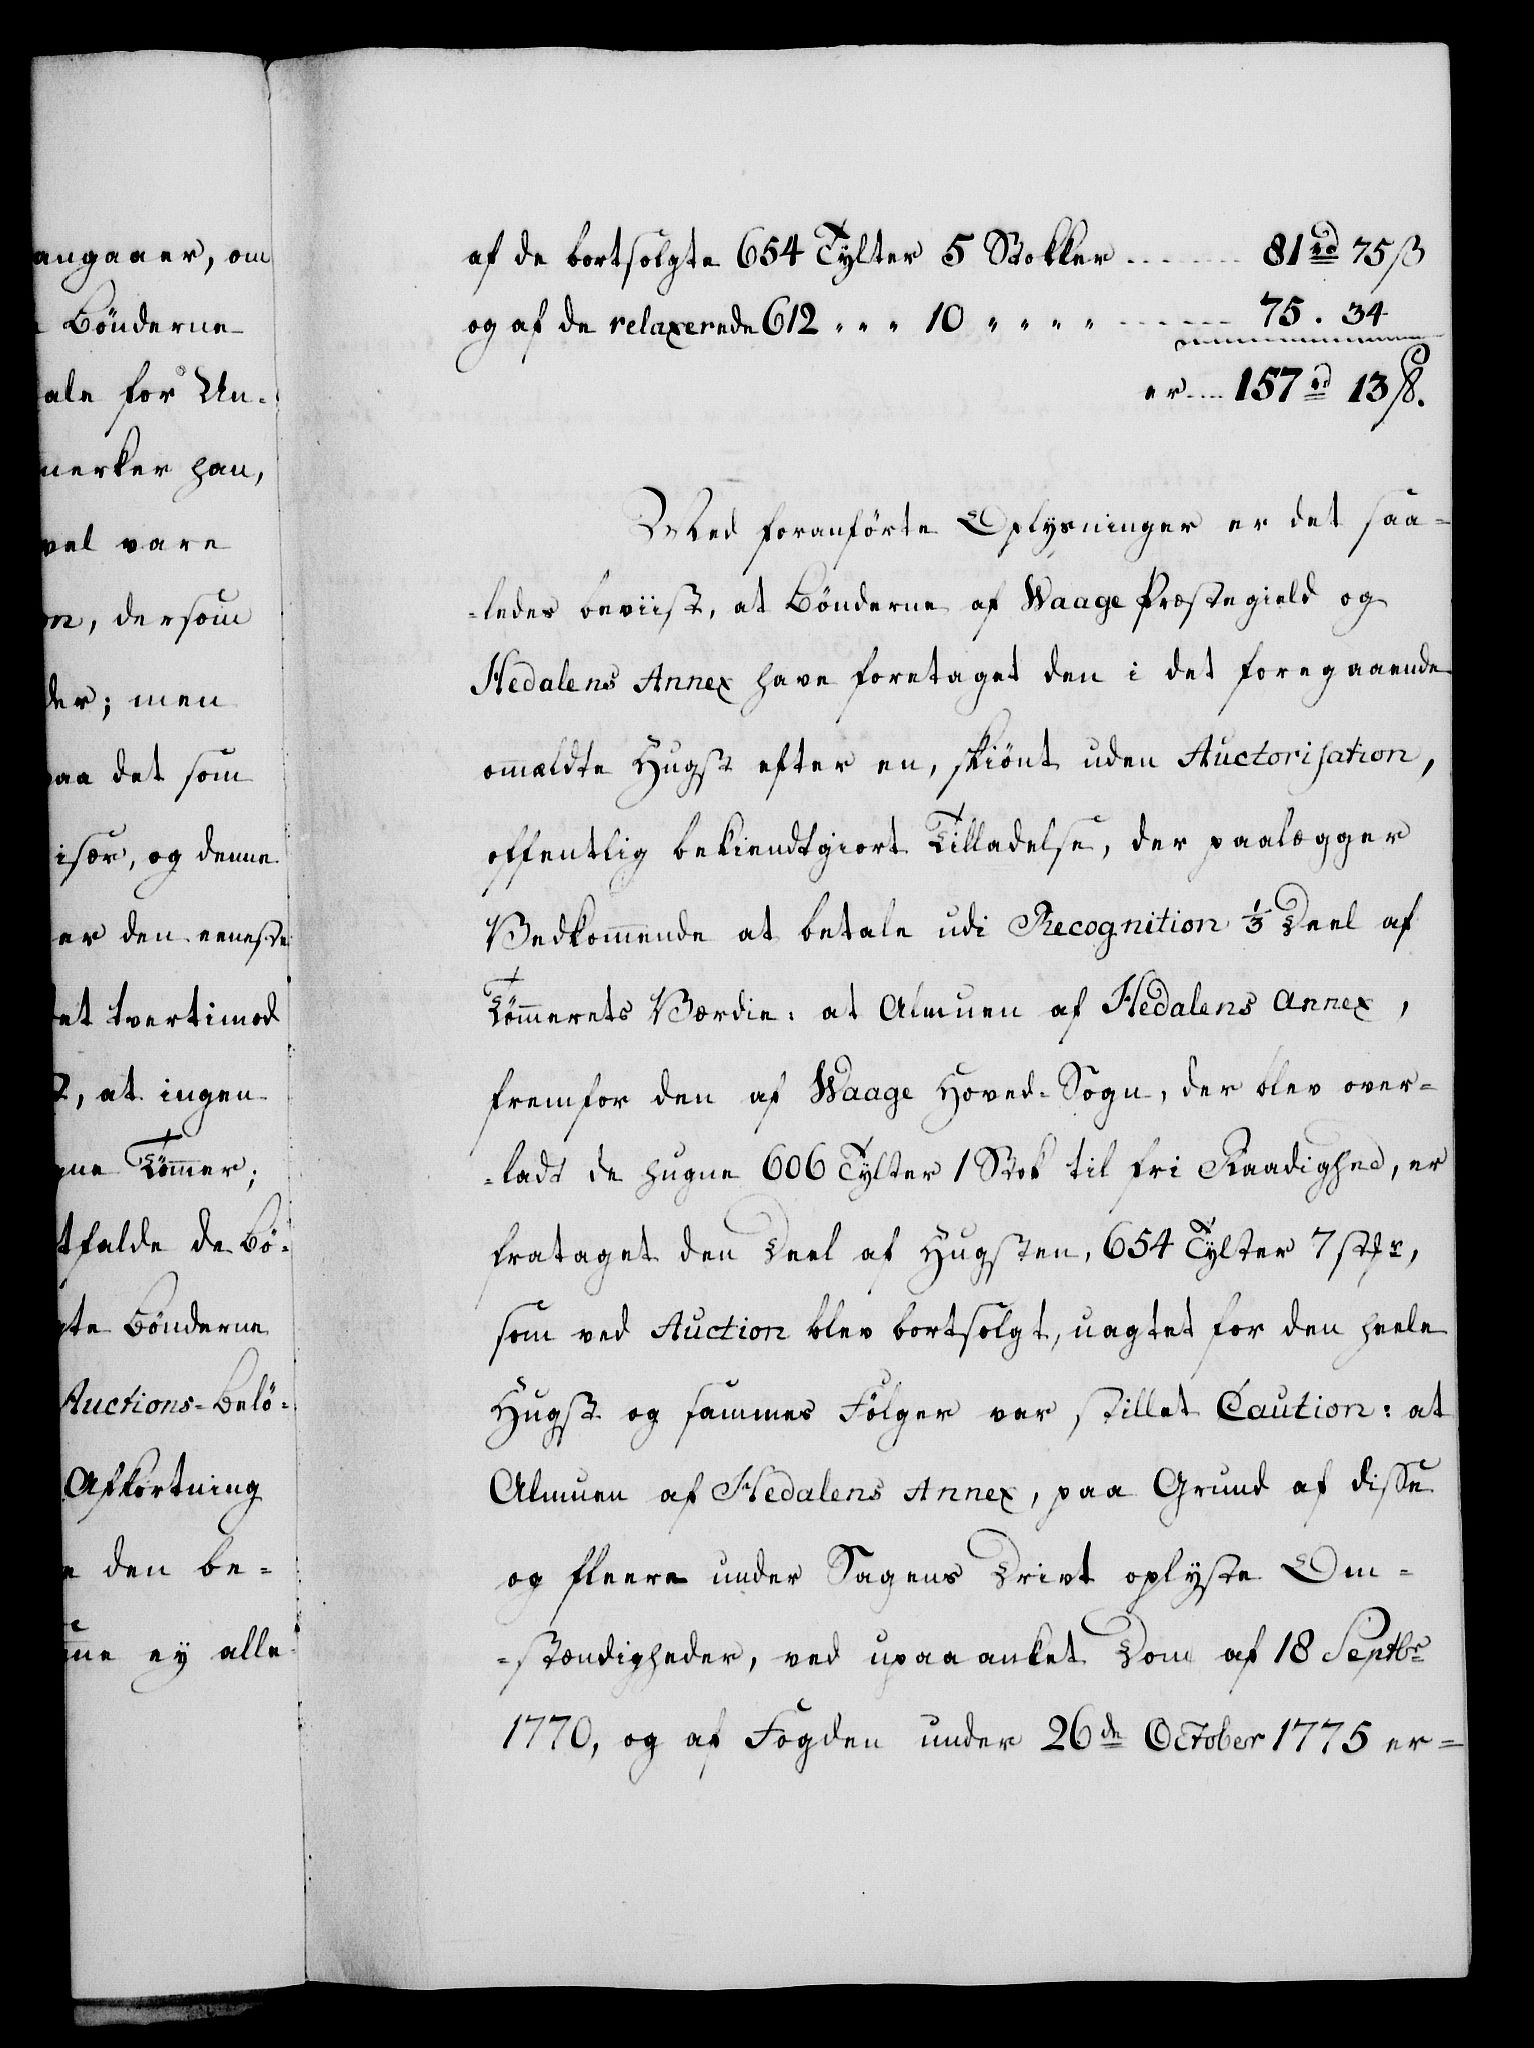 angaaer, om
Bönderne
ale for Un-
merker han,
vel vare
on, dersom
der; men
paa det som
især, og denne
er den eeneste
det tvertimod
t, at ingen
gne Tømmer;
tfalde de Bö-
gte Bönderne
Auctions-Belö-
Afkortning
e den be-
me ey alle
af de bortsolgte 654 Tylter 5 Stokker ....... 81 rd 75 ß
og af de relaxerede 612 " " " 10 " " " " ...... 75 . 34
er .... 157 rd 13 ß.
Med foranförte Oplysninger er det saa-
-ledes beviist, at Bönderne af Waage Præstegield og
Hedalens Annex have foretaget den i det foregaaende
omældte Hugst efter en, skiönt uden Auctorisation,
offentlig bekiendtgiort Tilladelse, der paalægger
Vedkommende at betale udi Recognition 1/3 Deel af
Tömmerets Værdie: at Almuen af Hedalens Annex,
fremfor den af Waage Hoved-Sogn, der blev over-
-ladt de hugne 606 Tylter 1 Stok til fri Raadighed, er
frataget den Deel af Hugsten, 654 Tylter 7 stkr,
som ved Auction blev bortsolgt, uagtet for den heele
Hugst og sammes Fölger var stillet Caution: at
Almuen af Hedalens Annex, paa Grund af disse
og fleere under Sagens Drivt oplyste Om-
-stændigheder, ved upaaanket Dom af 18 Septbr
1770, og af Fogden under 26de October 1775 er-